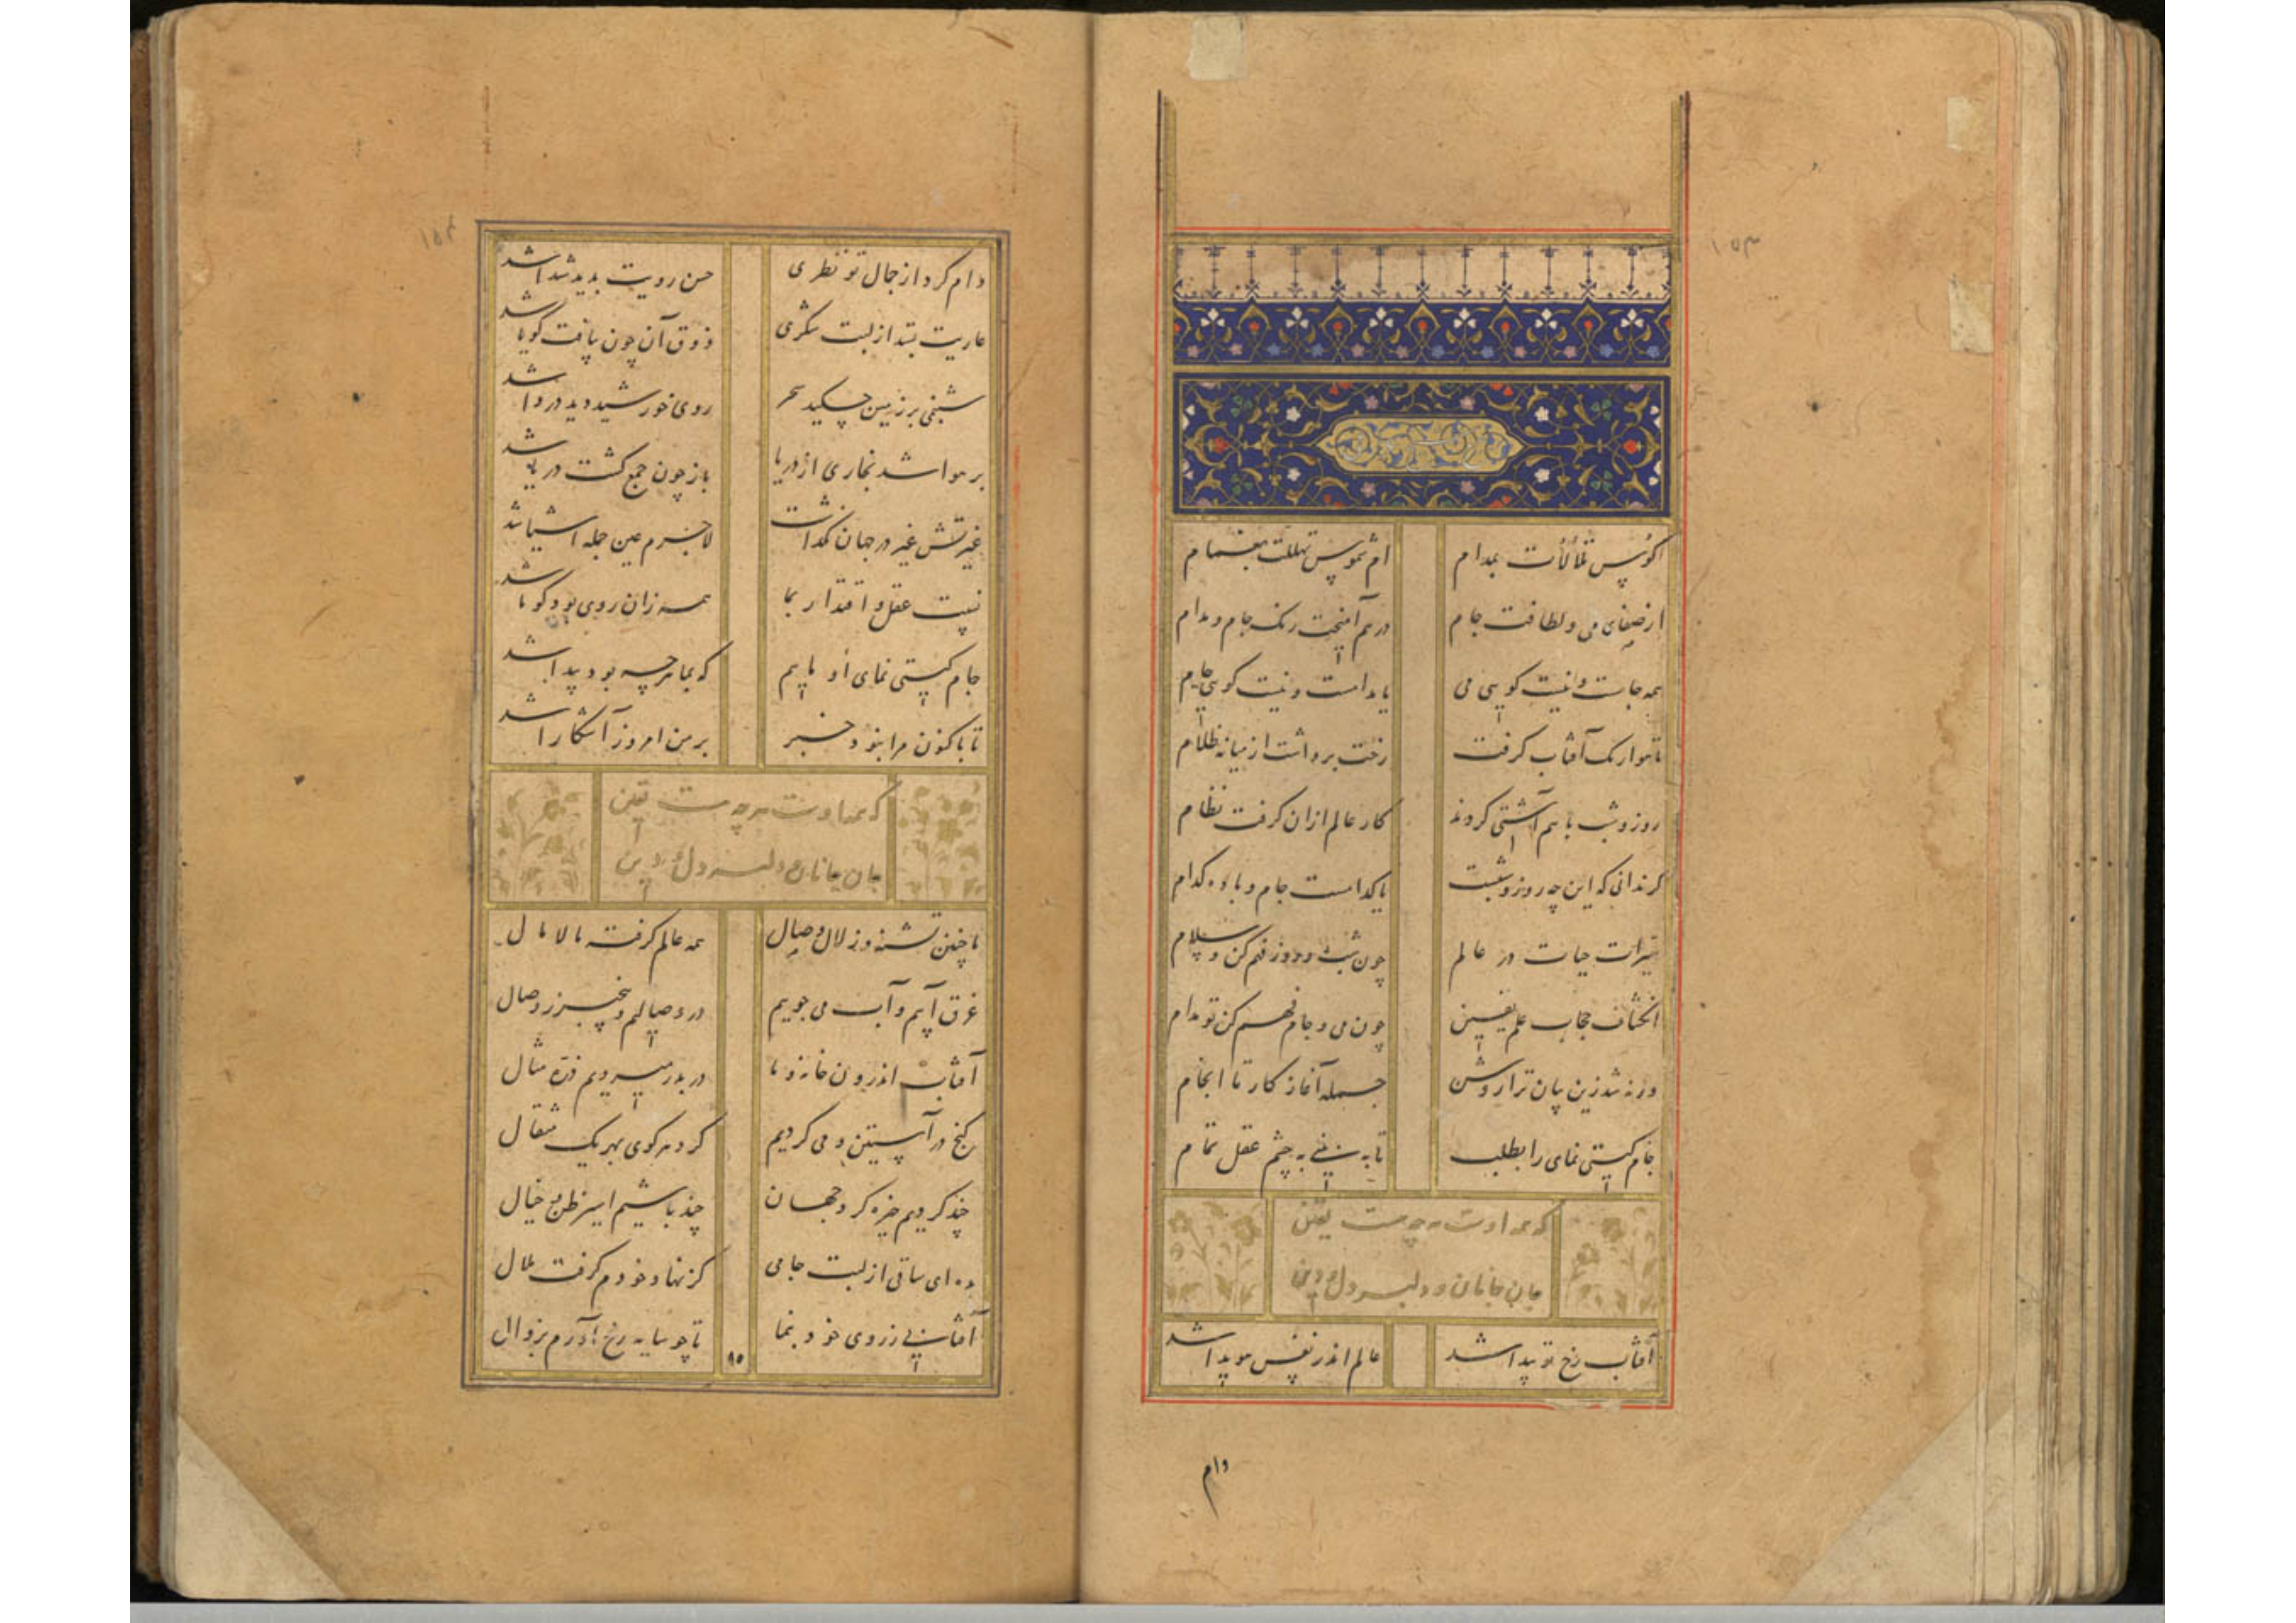 ۱۵۳
اکوس تلألأت بمدام ام شموس تهللت بغمام
از صفای می و لطافت جام درهم آمیخت رنک جام و مدام
همه جامست و نیست کویی می یا مدامست و نیست کویی جام
تا هوا رنک آفتاب کرفت رخت برداشت از میانه ظلام
روز و شب با هم آشتی کردند کار عالم ازان کرفت نظام
کر ندانی که این چه روز و شبست یا کدامست جام و باده کدام
سریان حیات در عالم چون شب و روز فهم کن و سلام
انکشاف حجاب علم یقین چون می و جام فهم کن تو مدام
ور نشد زین بیان ترا روشن جمله آغاز کار تا انجام
جام کیتی نمای را بطلب تا به بینی به چشم عقل تمام
که همه اوست هر چه هست یقین
جان جانان و دلبر و دل و دین
آفتاب رخ تو پیدا شد عالم اندر نفس هویدا شد
دام
۱۵۴
دام کرد از جمال تو نظری حسن رویت بدید شیدا شد
عاریت بستد از لبت شکری ذوق آن چون بیافت کویا شد
شبنمی بر زمین چکید سحر روی خورشید دید دروا شد
بر هوا شد بخاری از دریا باز چون جمع کشت دریا شد
غیرتش غیر در جهان نکذاشت لاجرم عین جمله اشیا شد
نسبت عقل و اقتدار بما همه زان روی بود کو ما شد
جام کیتی نمای او ماییم که بما هرچه بود پیدا شد
تا باکنون مرا نبود خبر بر من امروز آشکارا شد
که همه اوست هر چه هست یقین
جان جانان و دلبر و دل و دین
ما چنین تشنه و زلال وصال همه عالم کرفته مالامال
غرق آبیم و آب می جوییم در وصالیم و بیخبر ز وصال
آفتاب اندرون خانه و ما در بدر میرویم ذره مثال
کنج در آستین و می کردیم کرد هر کوی بهر یک مثقال
چند کردیم خیره کرد جهان چند باشیم اسیر ظن و خیال
ده ای ساقی از لبت جامی کز نهاد خودم کرفت ملال
آفتابی ز روی خود بنما تا چو سایه رخ آورم بزوال
۸۵